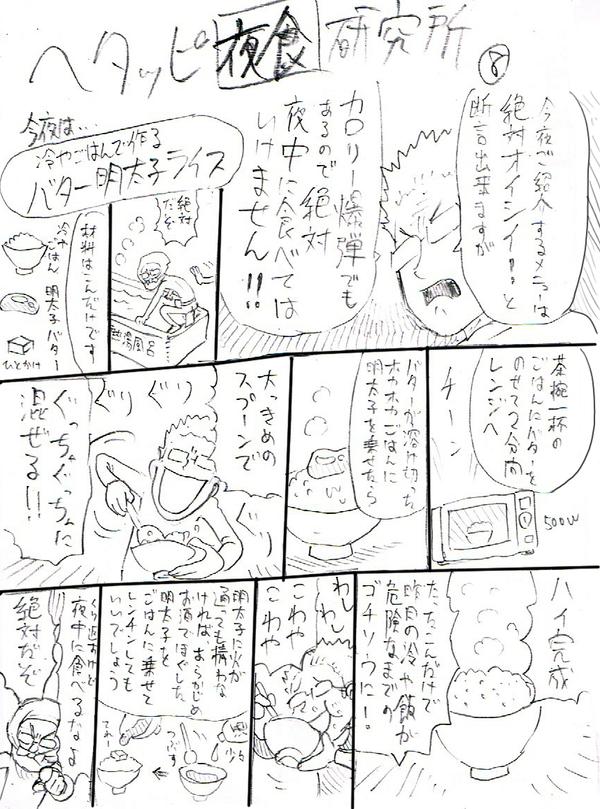 ヘタッピ夜食研究所
⑧
今夜ご紹介するメニューは
絶対オイシイ!!と
断言出来ますが
カロリー爆弾でも
あるので絶対
夜中に食べては
いけません!!
今夜は…
冷やごはんで作る
バター明太子ライス
絶対
だぞ
熱湯風呂
材料はこんだけです
冷や
ごはん
明太子
バター
ひとかけ
茶碗一杯の
ごはんにバターを
のせて2分間
レンジへ
チーン
500W
バターが溶け切った
ホカホカごはんに
明太子を乗せたら
大っきめの
スプーンで
ぐりぐり
ぐっちゃぐっちゃに
混ぜる!!
ハイ完成
たったこんだけで
昨日の冷や飯が
危険なまでの
ゴチソウに!
わしわし
こわや
こわや
明太子に火が
通っても構わな
ければ、あらかじめ
お酒でほぐした
明太子を
ごはんに乗せて
レンチンしても
いいでしょう
酒
少々
つぶす
てれー
くり返すけど
夜中に食べるなよ
絶対だぞ